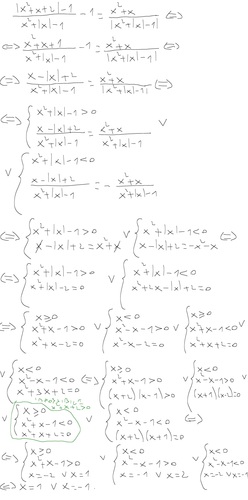 |x²+x+2|-1 / x²+|x|-1 - 1 = x²+x / |x²+|x|-1| <=>
<=> x²+x+1 / x²+|x|-1 - 1 = x²+x / |x²+|x|-1| <=>
<=> x-|x|+2 / x²+|x|-1 = x²+x / |x²+|x|-1| <=>
<=> { x²+|x|-1>0
x-|x|+2 / x²+|x|-1 = x²+x / x²+|x|-1 ∨
∨ { x²+|x|-1<0
x-|x|+2 / x²+|x|-1 = - x²+x / x²+|x|-1
<=> { x²+|x|-1>0 ∨ { x²+|x|-1<0 <=>
x-|x|+2=x²+x x-|x|+2=-x²-x
<=> { x²+|x|-1>0 ∨ { x²+|x|-1<0
x²+|x|-2=0 x²+2x-|x|+2=0
<=> { x≥0 ∨ { x<0 ∨ { x≥0
x²+x-1>0 x²-x-1>0 x²+x-1<0 ∨
x²+x-2=0 x²-x-2=0 x²+x+2=0
∨ { x<0 <=> { x≥0 ∨ { x<0
x²-x-1<0 x²+x-1>0 x²-x-1>0 ∨
x²+3x+2=0 (x+2)(x-1)=0
∨ { x≥0 ∨ { x<0
x²+x-1<0 x²-x-1<0
x²+x+2=0 (x+2)(x+1)=0
<=> { x≥0 ∨ { x<0 ∨ { x<0
x²+x-1>0 x²-x-1>0 x²-x-1<0
x=-2 ∨ x=1 x=-1 ∨ x=2 x=-2 ∨ x=-1
<=> x=1 ∨ x=-1.